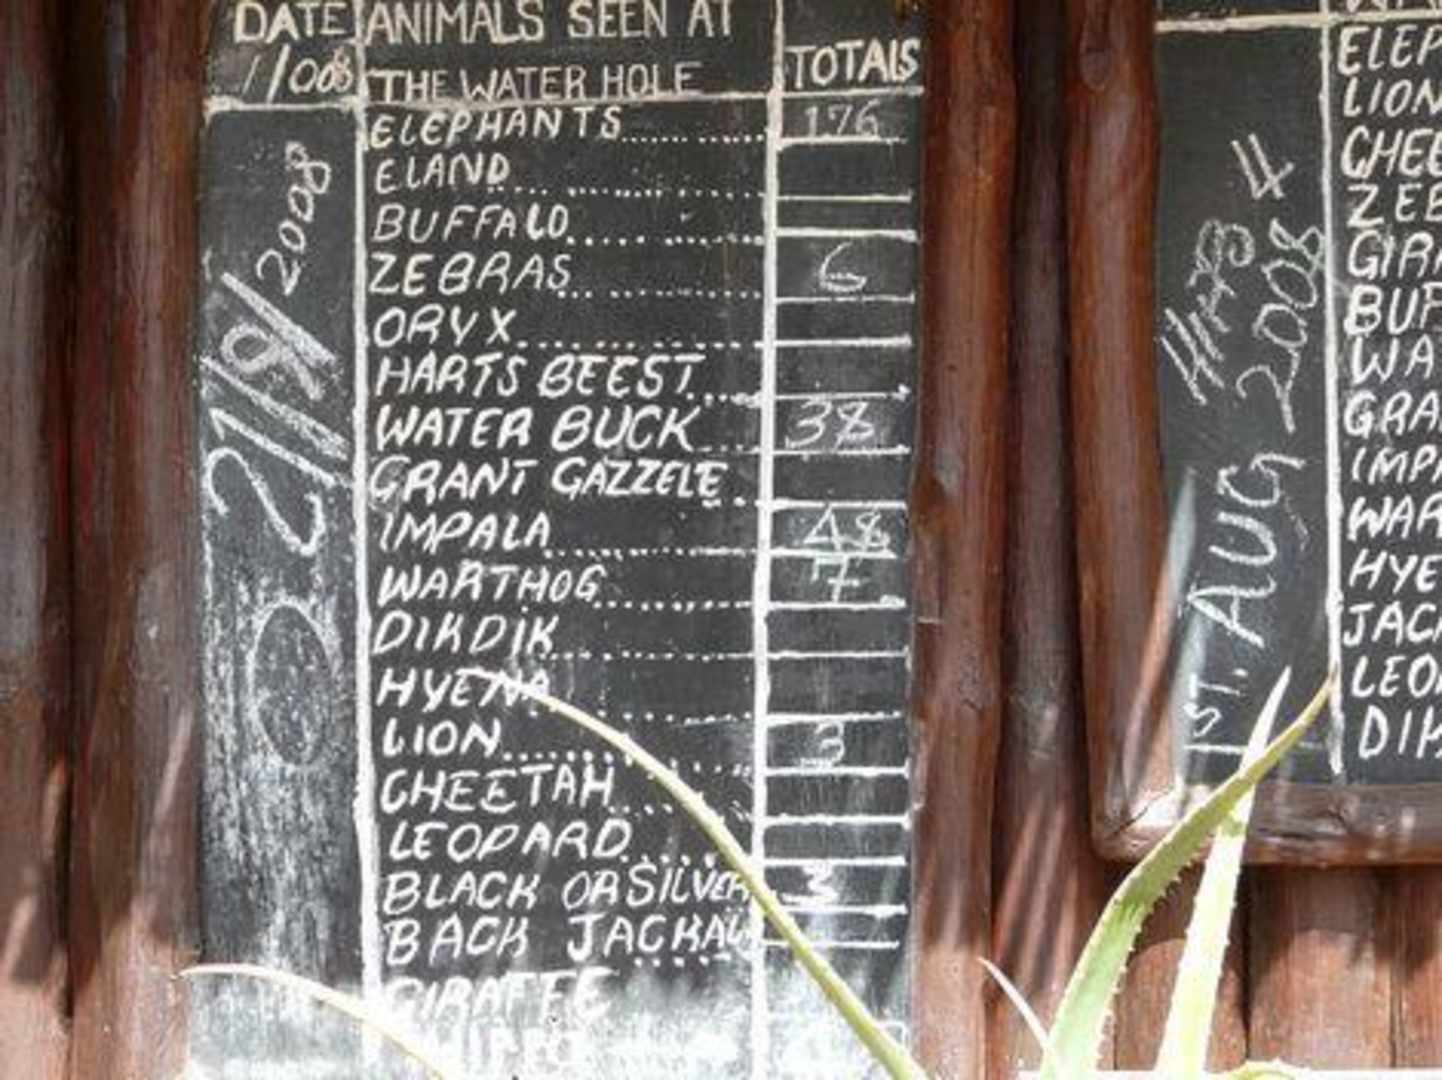 DATE ANIMALS SEEN AT
1/008 THE WATER HOLE TOTALS
21/8/2008
ELEPHANTS 176
ELAND
BUFFALO
ZEBRAS 6
ORYX
HARTS BEEST
WATER BUCK 38
GRANT GAZZELE
IMPALA 48
WARTHOG 7
DIKDIK
HYENA
LION 3
CHEETAH
LEOPARD
BLACK OR SILVER 3
BACK JACKAL
GIRAFFE
ST. AUG 2008
ELEP
LION
CHEE
ZEB
GIRA
BUF
WAT
GRA
IMPA
WAR
HYE
JACK
LEO
DIK